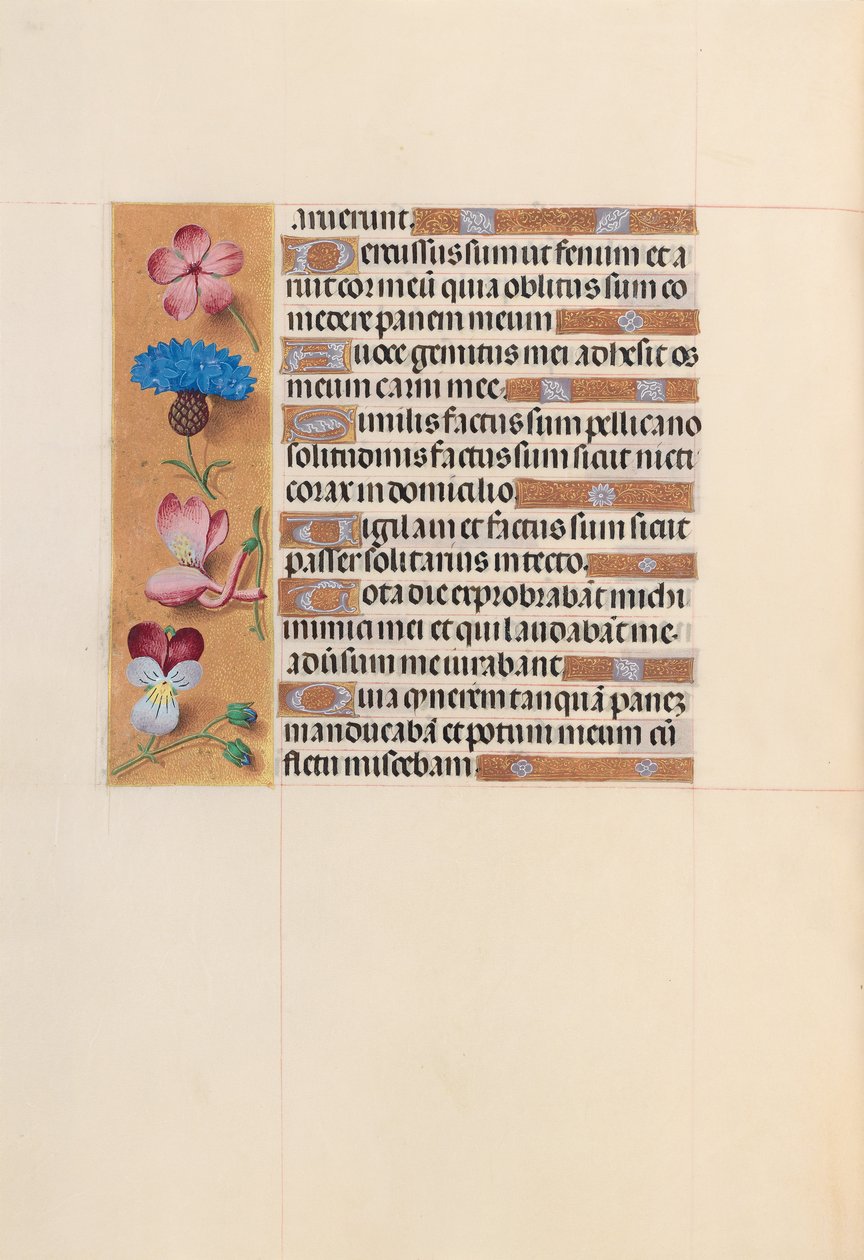 aruerunt.
Percussus sum ut fenum et a
ruit cor meū quia oblitus sum co
medere panem meum
A uoce gemitus mei adhesit os
meum carni mee.
Similis factus sum pellicano
solitudinis factus sum sicut nicti
corax in domicilio.
Uigilaui et factus sum sicut
passer solitarius in tecto.
Tota die exprobrabāt michi
inimici mei et qui laudabāt me.
adūsum me iurabant
Quia cynerem tanquā panez
manducabā et potum meum cū
fletu miscebam.